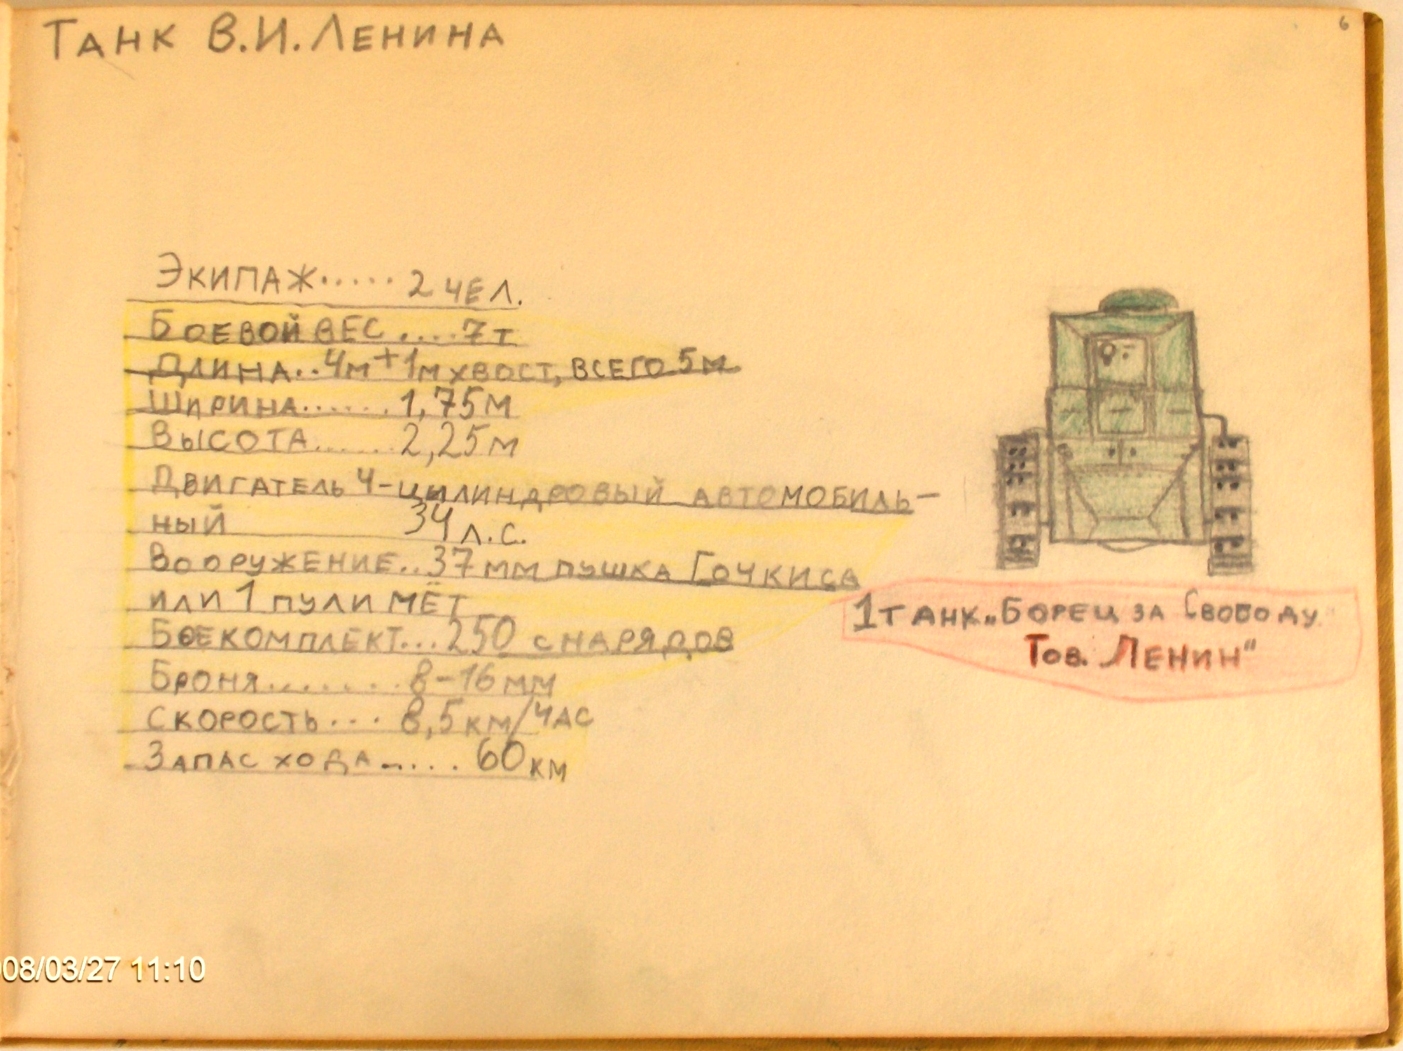 6
Танк В.И.Ленина
Экипаж..... 2 чел.
Боевой вес....7т
Длина..4м+1м хвост, всего 5м
Ширина...... 1,75м
Высота......2,25м
Двигатель 4-цилиндровый автомобиль-
ный 34 л.с.
Вооружение..37 мм пушка Гочкиса
или 1 пулимёт
Боекомплект...250 снарядов
Броня.......8-16 мм
Скорость... 8,5 км/час
Запас хода..... 60 км
1 танк „Борец за Свободу"
Тов. Ленин"
08/03/27 11:10